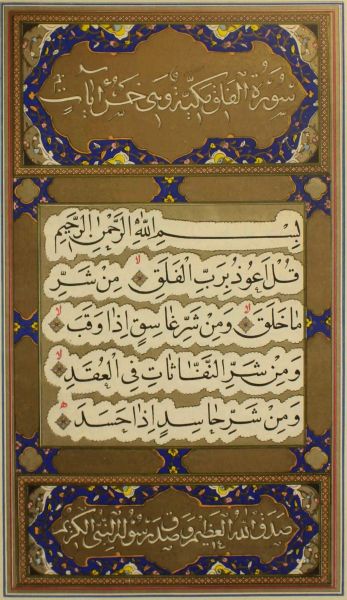 سورة الفلق مكية وهي خمس آيات
بِسْمِ اللهِ الرَّحْمٰنِ الرَّحِيمِ
قُلْ اَعُوذُ بِرَبِّ الْفَلَقِ ۙ مِنْ شَرِّ
مَا خَلَقَ ۙ وَمِنْ شَرِّ غَاسِقٍ اِذَا وَقَبَ ۙ
وَمِنْ شَرِّ النَّفَّاثَاتِ فِي الْعُقَدِ ۙ
وَمِنْ شَرِّ حَاسِدٍ اِذَا حَسَدَ
صدق الله العظيم وصدق رسوله النبي الكريم